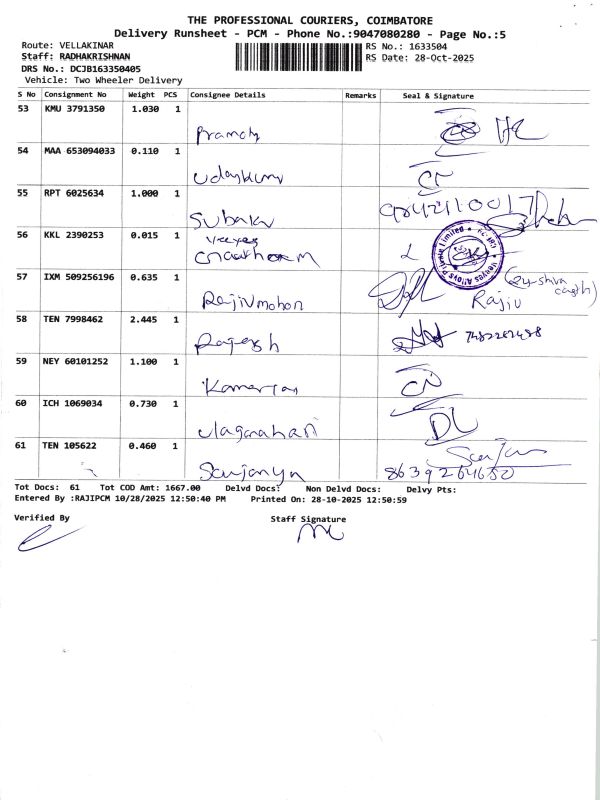 THE PROFESSIONAL COURIERS, COIMBATORE
Delivery Runsheet - PCM - Phone No.:9047080280 - Page No.:5
Route: VELLAKINAR
RS No.: 1633504
Staff: RADHAKRISHNAN
RS Date: 28-Oct-2025
DRS No.: DCJB163350405
Vehicle: Two Wheeler Delivery
S No Consignment No Weight PCS Consignee Details Remarks Seal & Signature
53 KMU 3791350 1.030 1
54 MAA 653094033 0.110 1
55 RPT 6025634 1.000 1
9842110017
Subaku
56 KKL 2390253 0.015 1
Alloys Private Limited
57 IXM 509256196 0.635 1
Rajivmohon Rajiv
58 TEN 7998462 2.445 1
Rajesh
59 NEY 60101252 1.100 1
60 ICH 1069034 0.730 1
DL
61 TEN 105622 0.460 1
Sanjanya
8639264680
Tot Docs: 61 Tot COD Amt: 1667.00 Delvd Docs: Non Delvd Docs: Delvy Pts:
Entered By :RAJIPCM 10/28/2025 12:50:40 PM Printed On: 28-10-2025 12:50:59
Verified By
Staff Signature